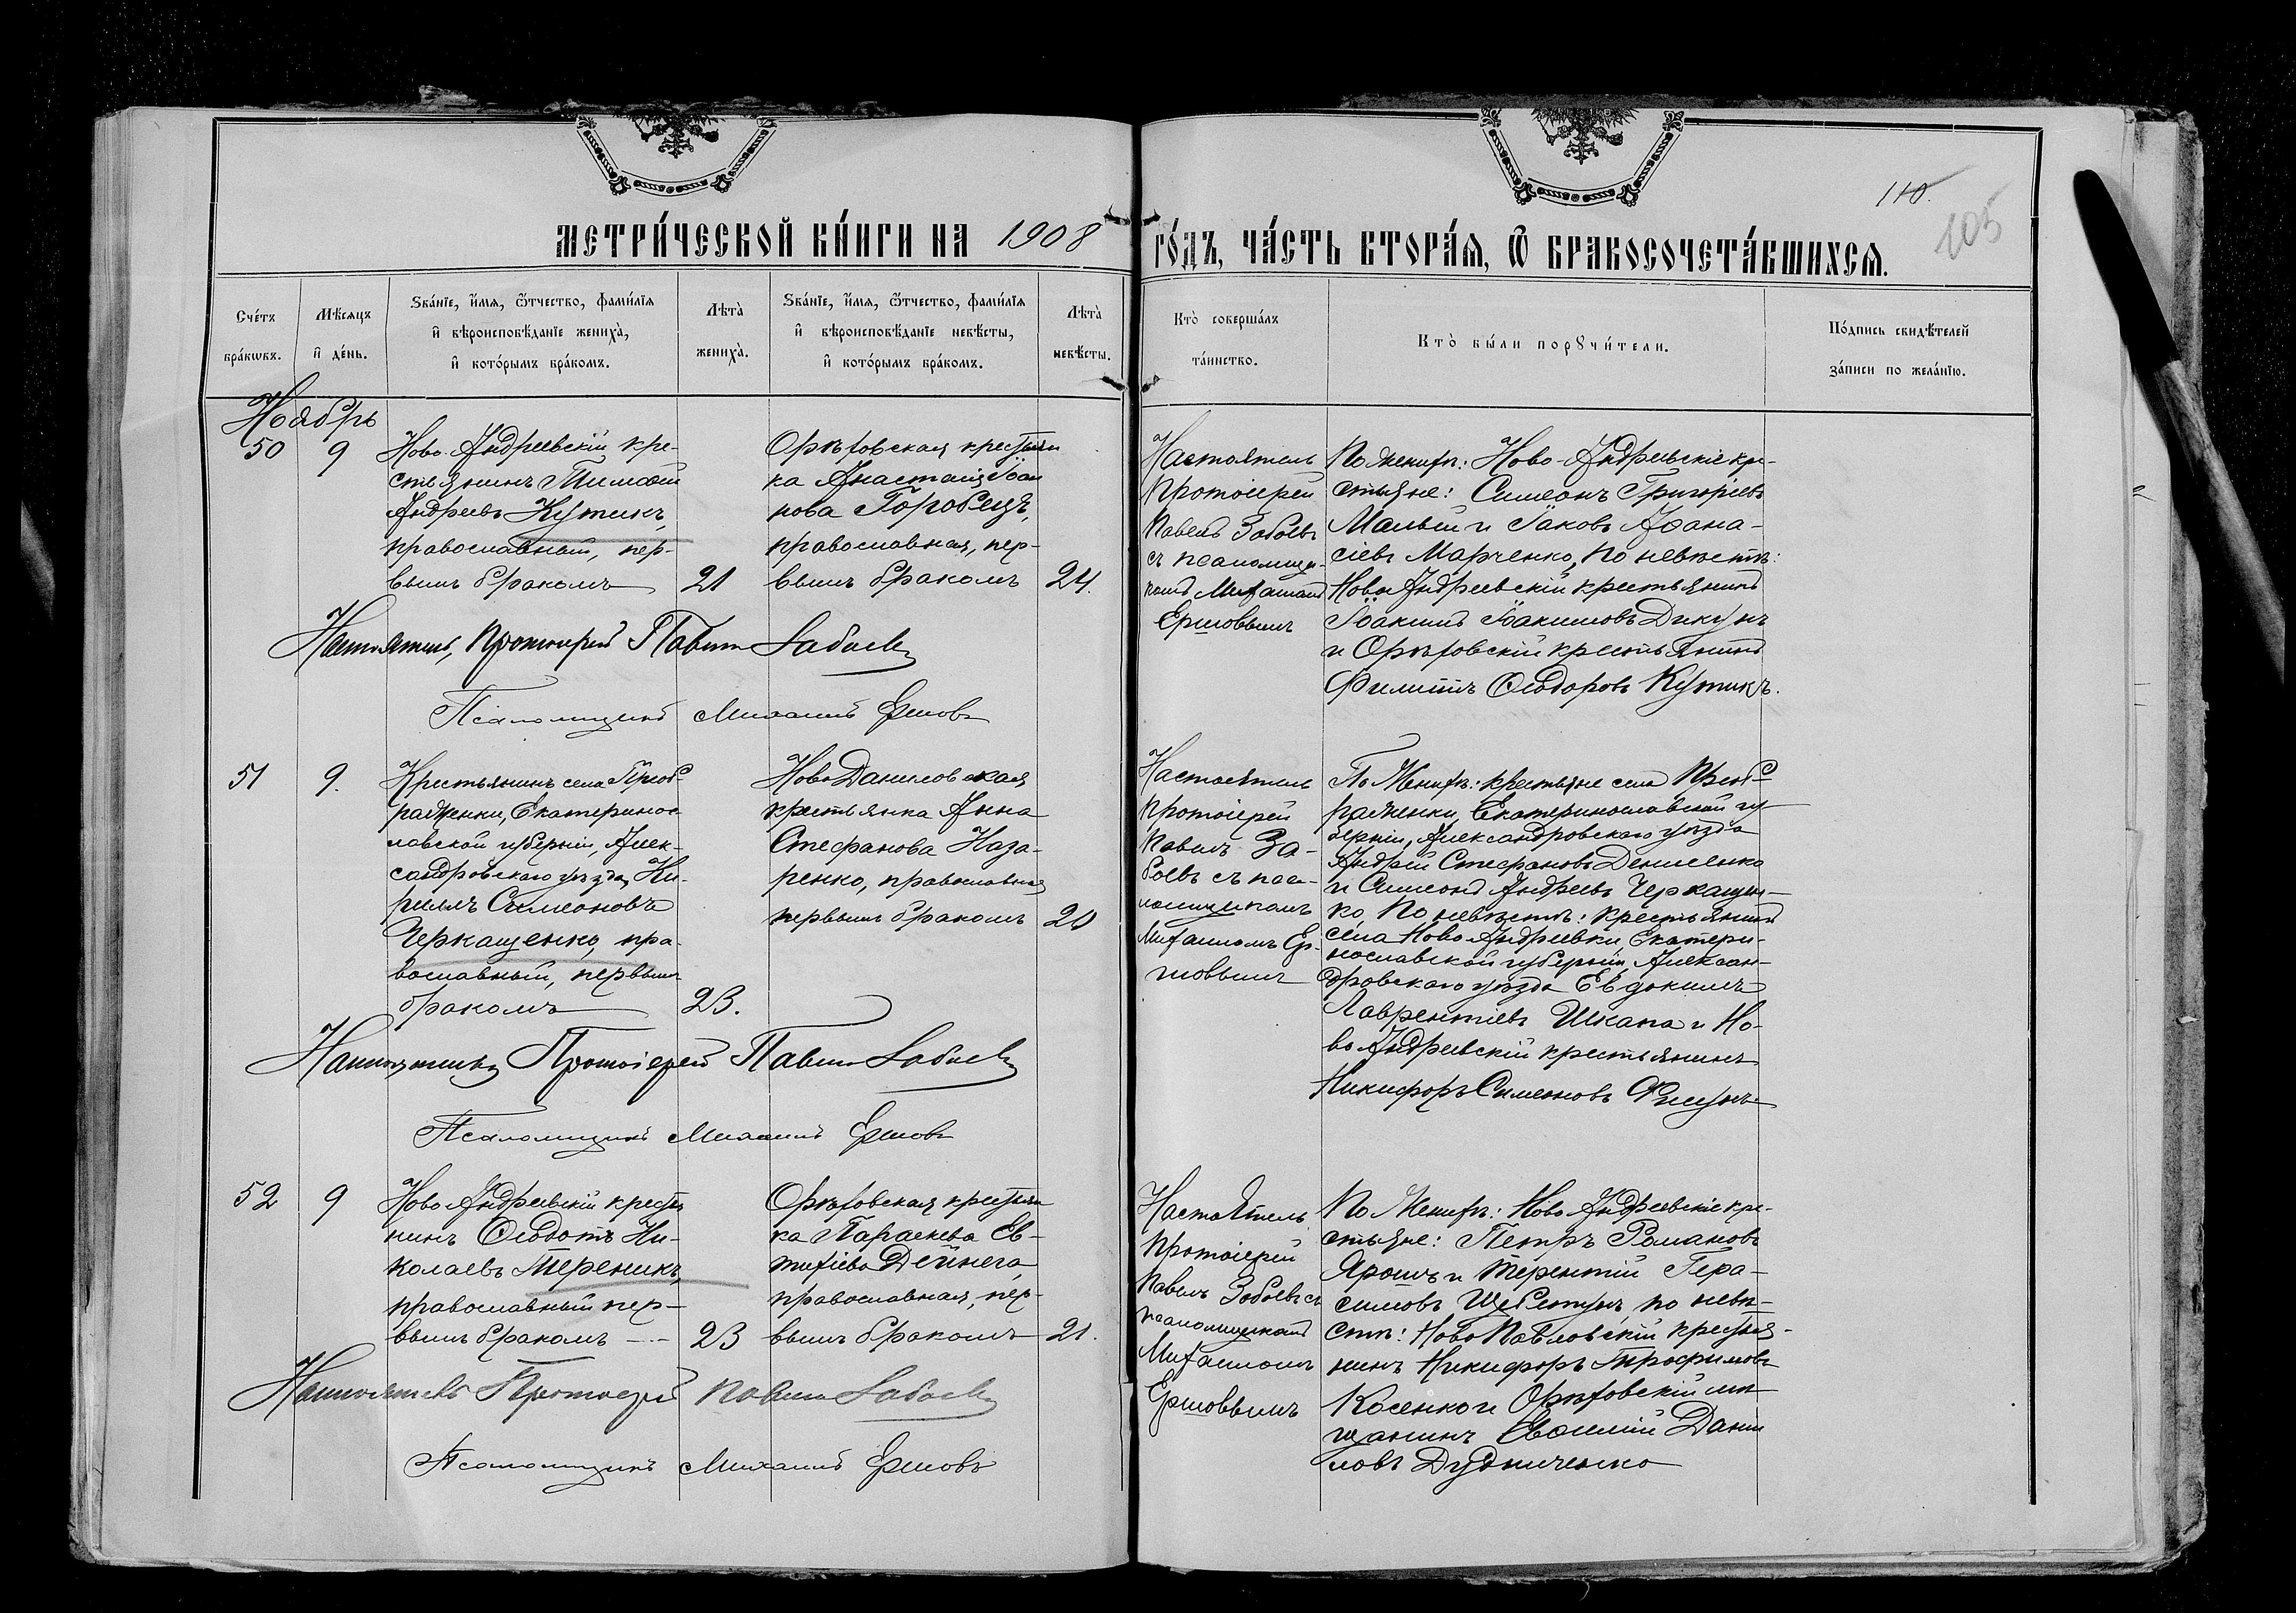 110.
105
МЕТРИ́ЧЕСКОЙ КНИ́ГИ НА 1908 ГО́ДЪ, ЧА́СТЬ ВТОРА́Я, Ѿ БРАКОСОЧЕТА́ВШИХСЯ.
Сче́тъ бра́кѡвъ.
Мѣ́сяцъ и҆ де́нь.
Зва́нїе, и҆́мѧ, ѻ҆́тчество, фами́лїѧ
и҆ вѣроисповѣ́данїе жениха̀,
и҆ кото́рымъ бра́комъ.
Лѣта̀ жениха̀.
Зва́нїе, и҆́мѧ, ѻ҆́тчество, фами́лїѧ
и҆ вѣроисповѣ́данїе невѣ́сты,
и҆ кото́рымъ бра́комъ.
Лѣта̀ невѣ́сты.
Кто̀ соверша́лъ та́инство.
Кто̀ бы́ли порꙋчи́тели.
По́дпись свидѣ́телей
за́писи по жела́нїю.
Ноябрь
50 9
Ново-Андреевскій кре-
стьянинъ Тимоѳей
Андреевъ Кутикъ,
православный, пер-
вымъ бракомъ 21
Орѣховская крестьян
ка Анастасія Іоан
нова Горобецъ,
православная, пер-
вымъ бракомъ 24.
Настоятель
Протоіерей
Павелъ Забоевъ
съ псаломщи-
комъ Михаиломъ
Ершовымъ
По женихѣ: Ново-Андреевскіе кре-
стьяне: Симеонъ Григорьевъ
Малый и Іаковъ Аѳана-
сіевъ Марченко, по невѣстѣ:
Ново Андреевскій крестьянинъ
Іоакимъ Іоакимовъ Дикунъ
и Орѣховскій крестьянинъ
Филиппъ Ѳеодоровъ Кутикъ.
Настоятель, Протоіерей Павелъ Забоевъ
Псаломщикъ Михаилъ Ершовъ
51 9.
Крестьянинъ села Преоб-
раженки, Екатеринос-
лавской губерніи, Алек-
сандровскаго уѣзда, Ки-
риллъ Симеоновъ
Черкащенко, пра-
вославный, первымъ
бракомъ 23.
Ново Даниловская
крестьянка Анна
Стефанова Наза-
ренко, православная
первымъ бракомъ 20
Настоятель
Протоіерей
Павелъ За-
боевъ съ пса-
ломщикомъ
Михаиломъ Ер-
шовымъ
По женихѣ: крестьяне села Преоб-
раженки, Екатеринославской гу-
берніи, Александровскаго уѣзда
Андрей Стефановъ Денисенко
и Симеонъ Андреевъ Черкащен-
ко, по невѣстѣ: крестьянинъ
села Ново Андреевки, Екатери-
нославской губерніи, Алексан-
дровскаго уѣзда Евдокимъ
Лаврентіевъ Шкапа и Но-
во Андреевскій крестьянинъ
Никифоръ Симеоновъ
Настоятель Протоіерей Павелъ Забоевъ
Псаломщикъ Михаилъ Ершовъ
52 9
Ново Андреевскій крестья
нинъ Ѳеодотъ Ни-
колаевъ Тереникъ,
православный пер-
вымъ бракомъ 23
Орѣховская крестьян
ка Параскева Ев-
тихіева Дейнега,
православная, пер-
вымъ бракомъ 21.
Настоятель
Протоіерей
Павелъ Забоевъ съ
псаломщикомъ
Михаиломъ
Ершовымъ
По женихѣ: Ново Андреевскіе кре-
стьяне: Петръ Романовъ
Ярошъ и Терентій Гера-
симовъ Щебетунъ, по невѣ-
стѣ: Ново Павловскій крестья-
нинъ Никифоръ Трофимовъ
Косенко и Орѣховскій мѣ-
щанинъ Евѳимій Дани
ловъ Дудниченко
Настоятель Протоіерей Павелъ Забоевъ
Псаломщикъ Михаилъ Ершовъ